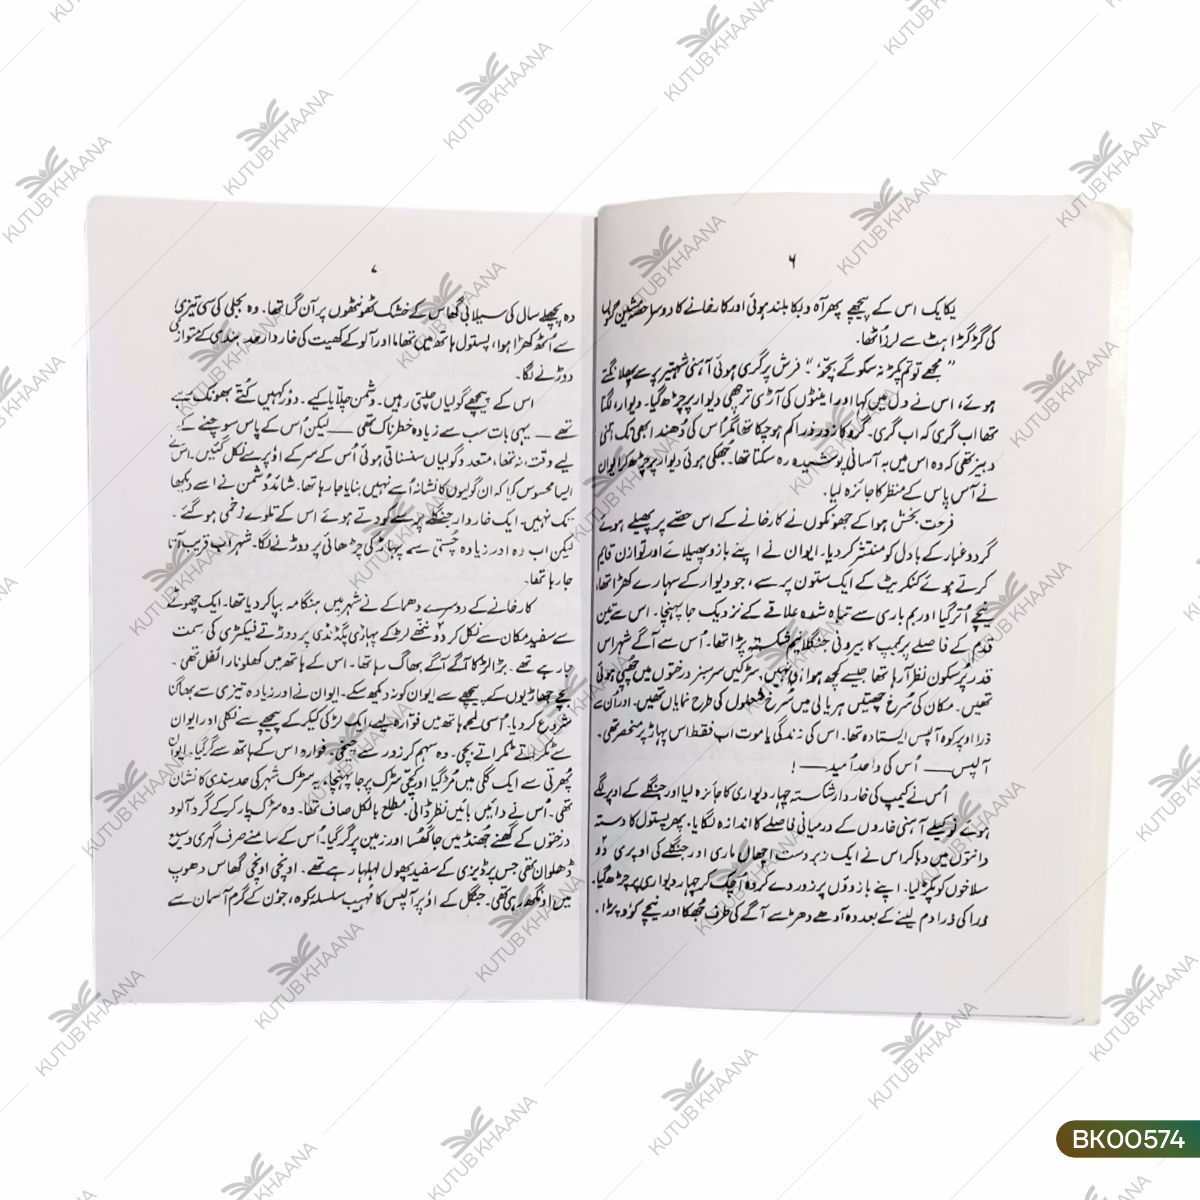 ۶
یکایک اس کے پیچھے پھر آہ و بکا بلند ہوئی اور کارخانے کا دوسرا حصہ مشین گولیوں
کی گڑگڑاہٹ سے لرز اُٹھا۔
"مجھے تو تم پکڑ نہ سکو گے بچّو!" فرش پر گری ہوئی آہنی شہتیر پر سے پھلانگتے
ہوئے، اس نے دل میں کہا اور اینٹوں کی آڑی ترچھی دیوار پر چڑھ گیا۔ دیوار، لگتا
تھا اب گری کہ اب گری۔ گرد کا زور ذرا کم ہو چکا تھا مگر اُس کی دُھند ابھی تک اتنی
دبیز تھی کہ وہ اس میں بہ آسانی پوشیدہ رہ سکتا تھا۔ جھکی ہوئی دیوار پر چڑھ کر ایوان
نے آس پاس کے منظر کا جائزہ لیا۔
فرحت بخش ہوا کے جھونکوں نے کارخانے کے اس حصّے پر پھیلے ہوئے
گرد و غبار کے بادل کو منتشر کر دیا۔ ایوان نے اپنے بازو پھیلائے اور توازن قایم
کرتے ہوئے کنکریٹ کے ایک ستون پر سے، جو دیوار کے سہارے کھڑا تھا،
نیچے اُتر گیا اور بم باری سے تباہ شدہ علاقے کے نزدیک جا پہنچا۔ اس سے تین
قدم کے فاصلے پر کیمپ کا بیرونی جنگلا نیم شکستہ پڑا تھا۔ اُس سے آگے شہر اس
قدر پُرسکون نظر آ رہا تھا جیسے کچھ ہوا ہی نہیں۔ سڑکیں سرسبز درختوں میں چھپی ہوئی
تھیں۔ مکان کی سُرخ چھتیں ہریالی میں سُرخ شعلوں کی طرح نمایاں تھیں۔ اور ان سے
ذرا اوپر کوہ آلپس ایستادہ تھا۔ اس کی زندگی یا موت اب فقط اس پہاڑ پر منحصر تھی۔
آلپس — اُس کی واحد اُمید — !
اُس نے کیمپ کی خاردار شکستہ چہار دیواری کا جائزہ لیا اور جنگلے کے اوپر لگے
ہوئے نوکیلے آہنی خاروں کے درمیانی فاصلے کا اندازہ لگایا۔ پھر پستول کا دستہ
دانتوں میں دبا کر اس نے ایک زبردست اچھال ماری اور جنگلے کی اوپری دو
سلاخوں کو پکڑ لیا۔ اپنے بازوؤں پر زور دے کر وہ اُچک کر چہار دیواری پر چڑھ گیا۔
ذرا کی ذرا دم لینے کے بعد وہ آدھے دھڑ سے آگے کی طرف جھکا اور نیچے کود پڑا۔
۷
وہ پچھلے سال کی سیلابی گھاس کے خشک ٹھونٹھوں پر آن گرا تھا۔ وہ بجلی کی سی تیزی
سے اُٹھ کھڑا ہوا، پستول ہاتھ میں تھاما اور آلو کے کھیت کی خاردار حد بندی کے متوازی
دوڑنے لگا۔
اس کے پیچھے گولیاں چلتی رہیں۔ دشمن چلّایا کیے۔ دُور کہیں کتے بھونک رہے
تھے — یہی بات سب سے زیادہ خطرناک تھی — لیکن اُس کے پاس سوچنے کے
لیے وقت نہ تھا، متعدد گولیاں سنسناتی ہوئی اُس کے سر کے اوپر سے نکل گئیں۔ اس نے
ایسا محسوس کیا کہ ان گولیوں کا نشانہ اُسے نہیں بنایا جا رہا تھا۔ شاید دُشمن نے اسے دیکھا
تک نہیں۔ ایک خاردار جنگلے پر سے کودتے ہوئے اس کے تلوے زخمی ہو گئے۔
لیکن اب وہ اور زیادہ چُستی سے پہاڑ کی چڑھائی پر دوڑنے لگا۔ شہر اب قریب آتا
جا رہا تھا۔
کارخانے کے دوسرے دھماکے نے شہر میں ہنگامہ بپا کر دیا تھا۔ ایک چھوٹے
سے سفید مکان سے نکل کر دو ننھے لڑکے پہاڑی پگڈنڈی پر دوڑتے فیکٹری کی سمت
جا رہے تھے۔ بڑا لڑکا آگے آگے بھاگ رہا تھا۔ اس کے ہاتھ میں کھلونا رائفل تھی۔
بچے جھاڑیوں کے پیچھے سے ایوان کو نہ دیکھ سکے۔ ایوان نے اور زیادہ تیزی سے بھاگنا
شروع کر دیا۔ اُسی لمحہ ہاتھ میں فوارہ لیے ایک لڑکی کیکر کے پیچھے سے نکلی اور ایوان
سے ٹکراتے ٹکراتے بچی۔ وہ سہم کر زور سے چیخی۔ فوارہ اس کے ہاتھ سے گر گیا۔ ایوان
پھرتی سے ایک نکی میں مُڑ گیا اور پکّی سڑک پر جا پہنچا۔ یہ سڑک شہر کی حد بندی کا نشان
تھی۔ اُس نے دائیں بائیں نظر ڈالی۔ مطلع بالکل صاف تھا۔ وہ سڑک پار کر کے گرد آلود
درختوں کے گھنے جُھنڈ میں جا گھسا اور زمین پر گر گیا۔ اُس کے سامنے صرف گہری وسیع
ڈھلوان تھی جس پر ڈیزی کے سفید پھول لہلہا رہے تھے۔ اونچی اونچی گھاس دھوپ
میں اونگھ رہی تھی۔ جنگل کے اوپر آلپس کا مُہیب سلسلۂ کوہ، جون کے گرم آسمان سے
KUTUB KHAANA
BK00574